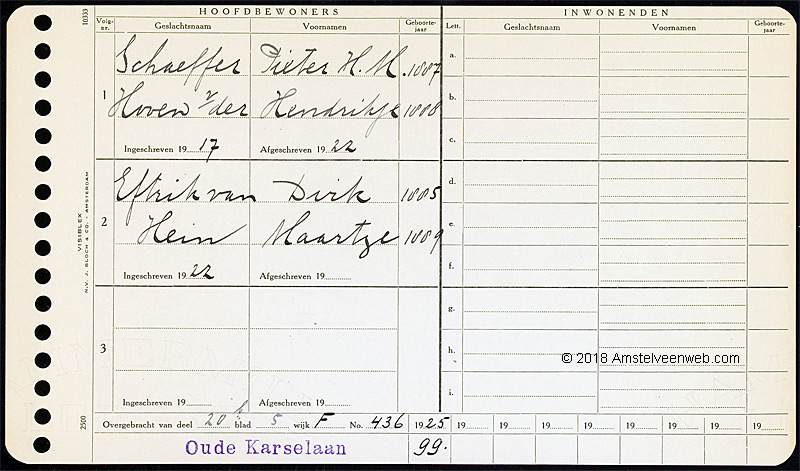 HOOFDBEWONERS INWONENDEN
Volg-nr. Geslachtsnaam Voornamen Geboorte-jaar Lett. Geslachtsnaam Voornamen Geboorte-jaar
10333
1
Schaeffer Pieter H. M. 1887
Hoven v/der Hendrikje 1888
Ingeschreven 19 17 Afgeschreven 19 22
2
Eftrik van Dirk 1885
Hein Maartje 1889
Ingeschreven 19 22 Afgeschreven 19
3
Ingeschreven 19 Afgeschreven 19
a.
b.
c.
d.
e.
f.
g.
h.
i.
VISIBLEX
N.V. J. BLOCH & CO. - AMSTERDAM
2500
© 2018 Amstelveenweb.com
Overgebracht van deel 20 blad 5 wijk F No. 436 1925 19 19 19 19 19 19 19 19
Oude Karselaan 99.